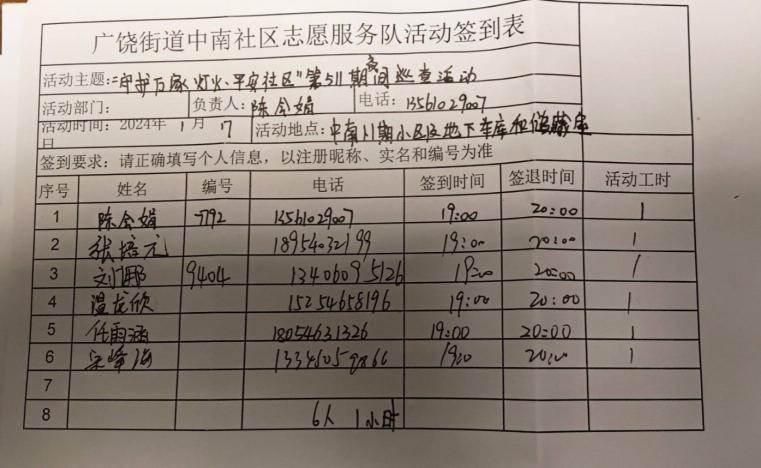 广饶街道中南社区志愿服务队活动签到表
活动主题:“守护万家灯火、平安社区”第511期夜间巡查活动
活动部门: 负责人:陈会娟 电话:13561029007
活动时间:2024年1月7日 活动地点:中南II期小区地下车库和储藏室
签到要求:请正确填写个人信息,以注册昵称、实名和编号为准
序号 姓名 编号 电话 签到时间 签退时间 活动工时
1 陈会娟 7792 13561029007 19:00 20:00 1
2 张培元 18954032199 19:00 20:00 1
3 刘娜 9404 13406095126 19:00 20:00 1
4 温龙欣 15254658196 19:00 20:00 1
5 任雨涵 18054631326 19:00 20:00 1
6 宋峰海 13346059866 19:00 20:00 1
7
8 6人 1小时